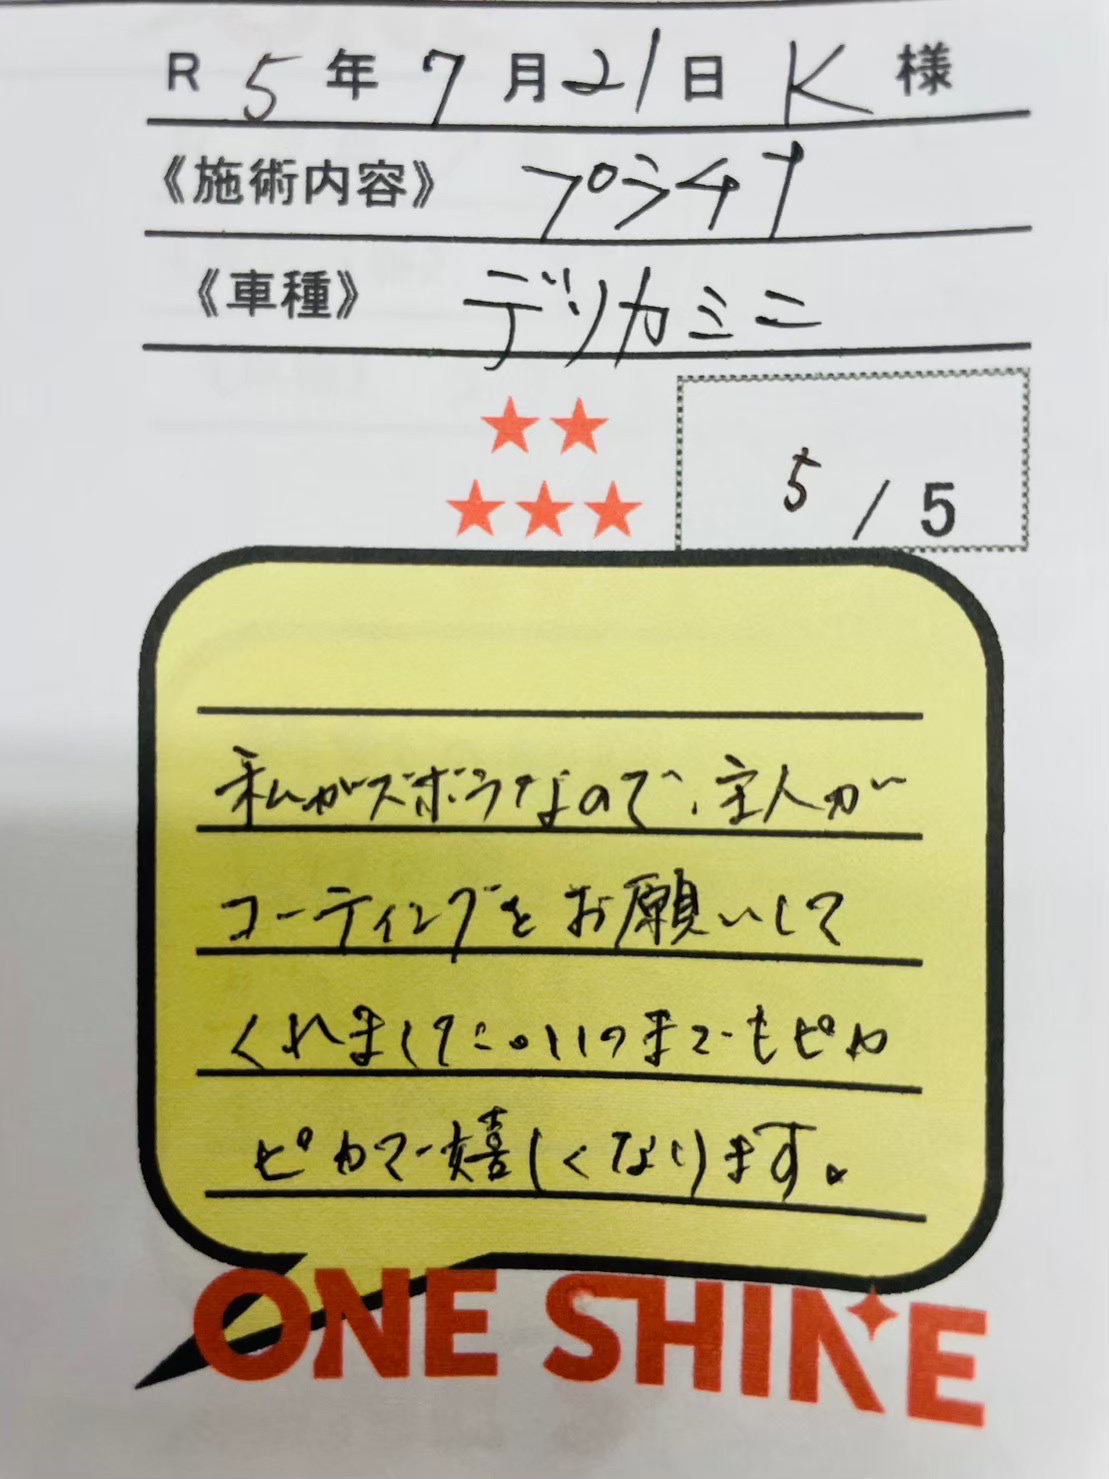 R 5年 7月 21日 K 様
《施術内容》 プラチナ
《車種》 デリカミニ
5 / 5
私がズボラなので、主人が
コーティングをお願いして
くれました。いつまでもピカ
ピカで嬉しくなります。
ONE SHINE